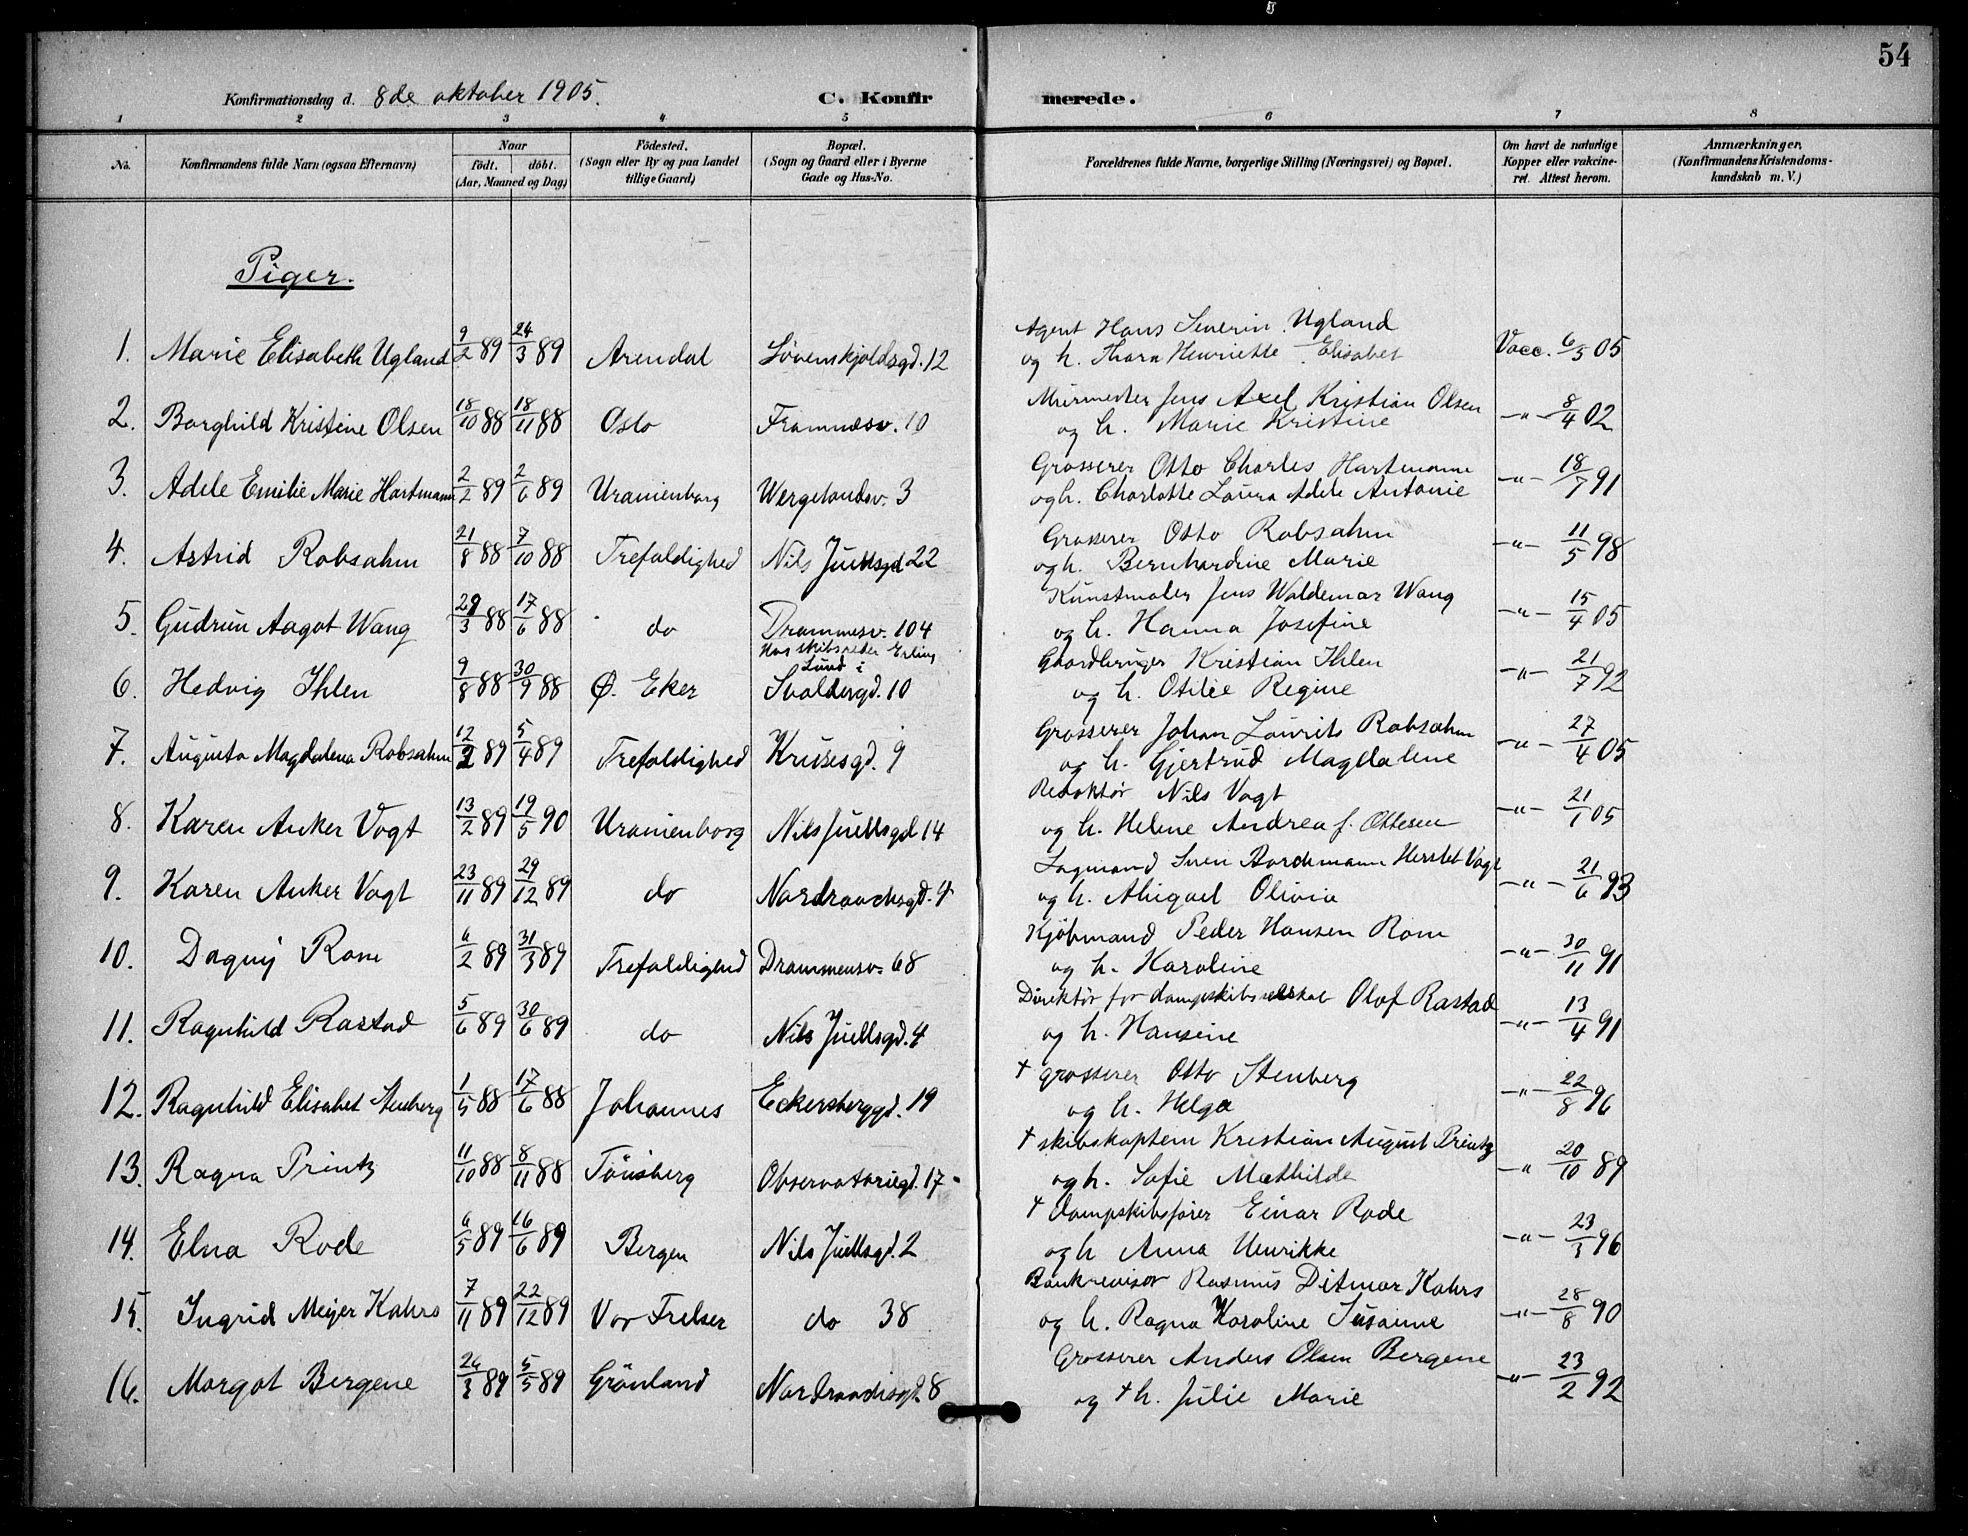 54
Konfirmationsdag d. 8de oktober 1905.
C. Konfirmerede.
1 2 3 4 5 6 7 8
No.
Konfirmandens fulde Navn (ogsaa Efternavn)
Naar
født. døbt.
(Aar, Maaned og Dag)
Fødested.
(Sogn eller By og paa Landet
tillige Gaard)
Bopæl.
(Sogn og Gaard eller i Byerne
Gade og Hus-No.
Forældrenes fulde Navne, borgerlige Stilling (Næringsvei) og Bopæl.
Om havt de naturlige
Kopper eller vakcine-
ret. Attest herom.
Anmærkninger.
(Konfirmandens Kristendoms-
kundskab m. V.)
Piger.
1. Marie Elisabeth Ugland 9/2 89 24/3 89 Arendal Løvenskjoldsgd. 12 Agent Hans Severin Ugland
og h. Thora Henriette Elisabet Vacc. 6/5 05
2. Borghild Kristine Olsen 18/10 88 18/11 88 Oslo Framnæsv. 10 Murmester Jens Axel Kristian Olsen
og h. Marie Kristine -"- 8/4 02
3. Adele Emilie Marie Hartmann 2/2 89 2/6 89 Uranienborg Wergelandsv. 3 Grosserer Otto Charles Hartmann
og h. Charlotte Laura Adele Antonie -"- 18/7 91
4. Astrid Robsahm 21/8 88 7/10 88 Trefoldighed Nils Juellsgd 22 Grosserer Otto Robsahm
og h. Bernhardine Marie -"- 11/5 98
5. Gudrun Aagot Wang 29/3 88 17/6 88 do Drammesv. 104 Kunstmaler Jens Waldemar Wang
og h. Hanna Josefine -"- 15/4 05
Hos skibsreder Erling
Lund i
6. Hedvig Ihlen 9/8 88 30/9 88 Ø. Eker Svoldergd. 10 Gaardbruger Kristian Ihlen
og h. Otilie Regine -"- 21/7 92
7. Augusta Magdalena Robsahm 12/2 89 5/4 89 Trefoldighed Krusesgd. 9 Grosserer Johan Laurits Robsahm
og h. Gjertrud Magdalene -"- 27/4 05
8. Karen Anker Vogt 13/2 89 19/5 90 Uranienborg Nils Juellsgd 14 Redaktør Nils Vogt
og h. Helene Andrea f. Ottesen -"- 21/1 05
9. Karen Anker Vogt 23/11 89 29/12 89 do Nordraachsgd. 4 Lagmand Sven Herslet Vogt
og h. Abigael Olivia -"- 21/6 93
10. Dagny Rom 6/2 89 31/3 89 Trefoldighed Drammensv. 68 Kjøbmand Peder Hansen Rom
og h. Karoline -"- 30/11 91
11. Ragnhild Rastad 5/6 89 30/6 89 do Nils Juellsgd. 4 Direktør for dampskibsselskab Olof Rastad
og h. Hansine -"- 13/4 91
12. Ragnhild Elisabet Stenberg 1/5 88 17/6 88 Johannes Eckersberggd. 19 † grosserer Otto Stenberg
og h. Helga -"- 22/8 96
13. Ragna Printz 11/10 88 8/11 88 Tönsberg Observatoriegd. 17 † skibskaptein Kristian August Printz
og h. Sofie Mathilde -" 20/10 89
14. Elna Rode 6/5 89 16/6 89 Bergen Nils Juellsgd. 2 † dampskibsfører Einar Rode
og h Anna Henrikke -"- 23/3 96
15. Ingrid Meyer Kahrs 7/11 89 22/12 89 Vor Frelser do 38 Bankrevisor Rasmus Ditmar Kahrs
og h. Ragna Karoline Susanne -"- 28/8 90
16. Margot Bergene 26/3 89 5/5 89 Grönland Nordraachsgd. 8 Grosserer Anders Olsen Bergene
og † h. Julie Marie -"- 23/2 92